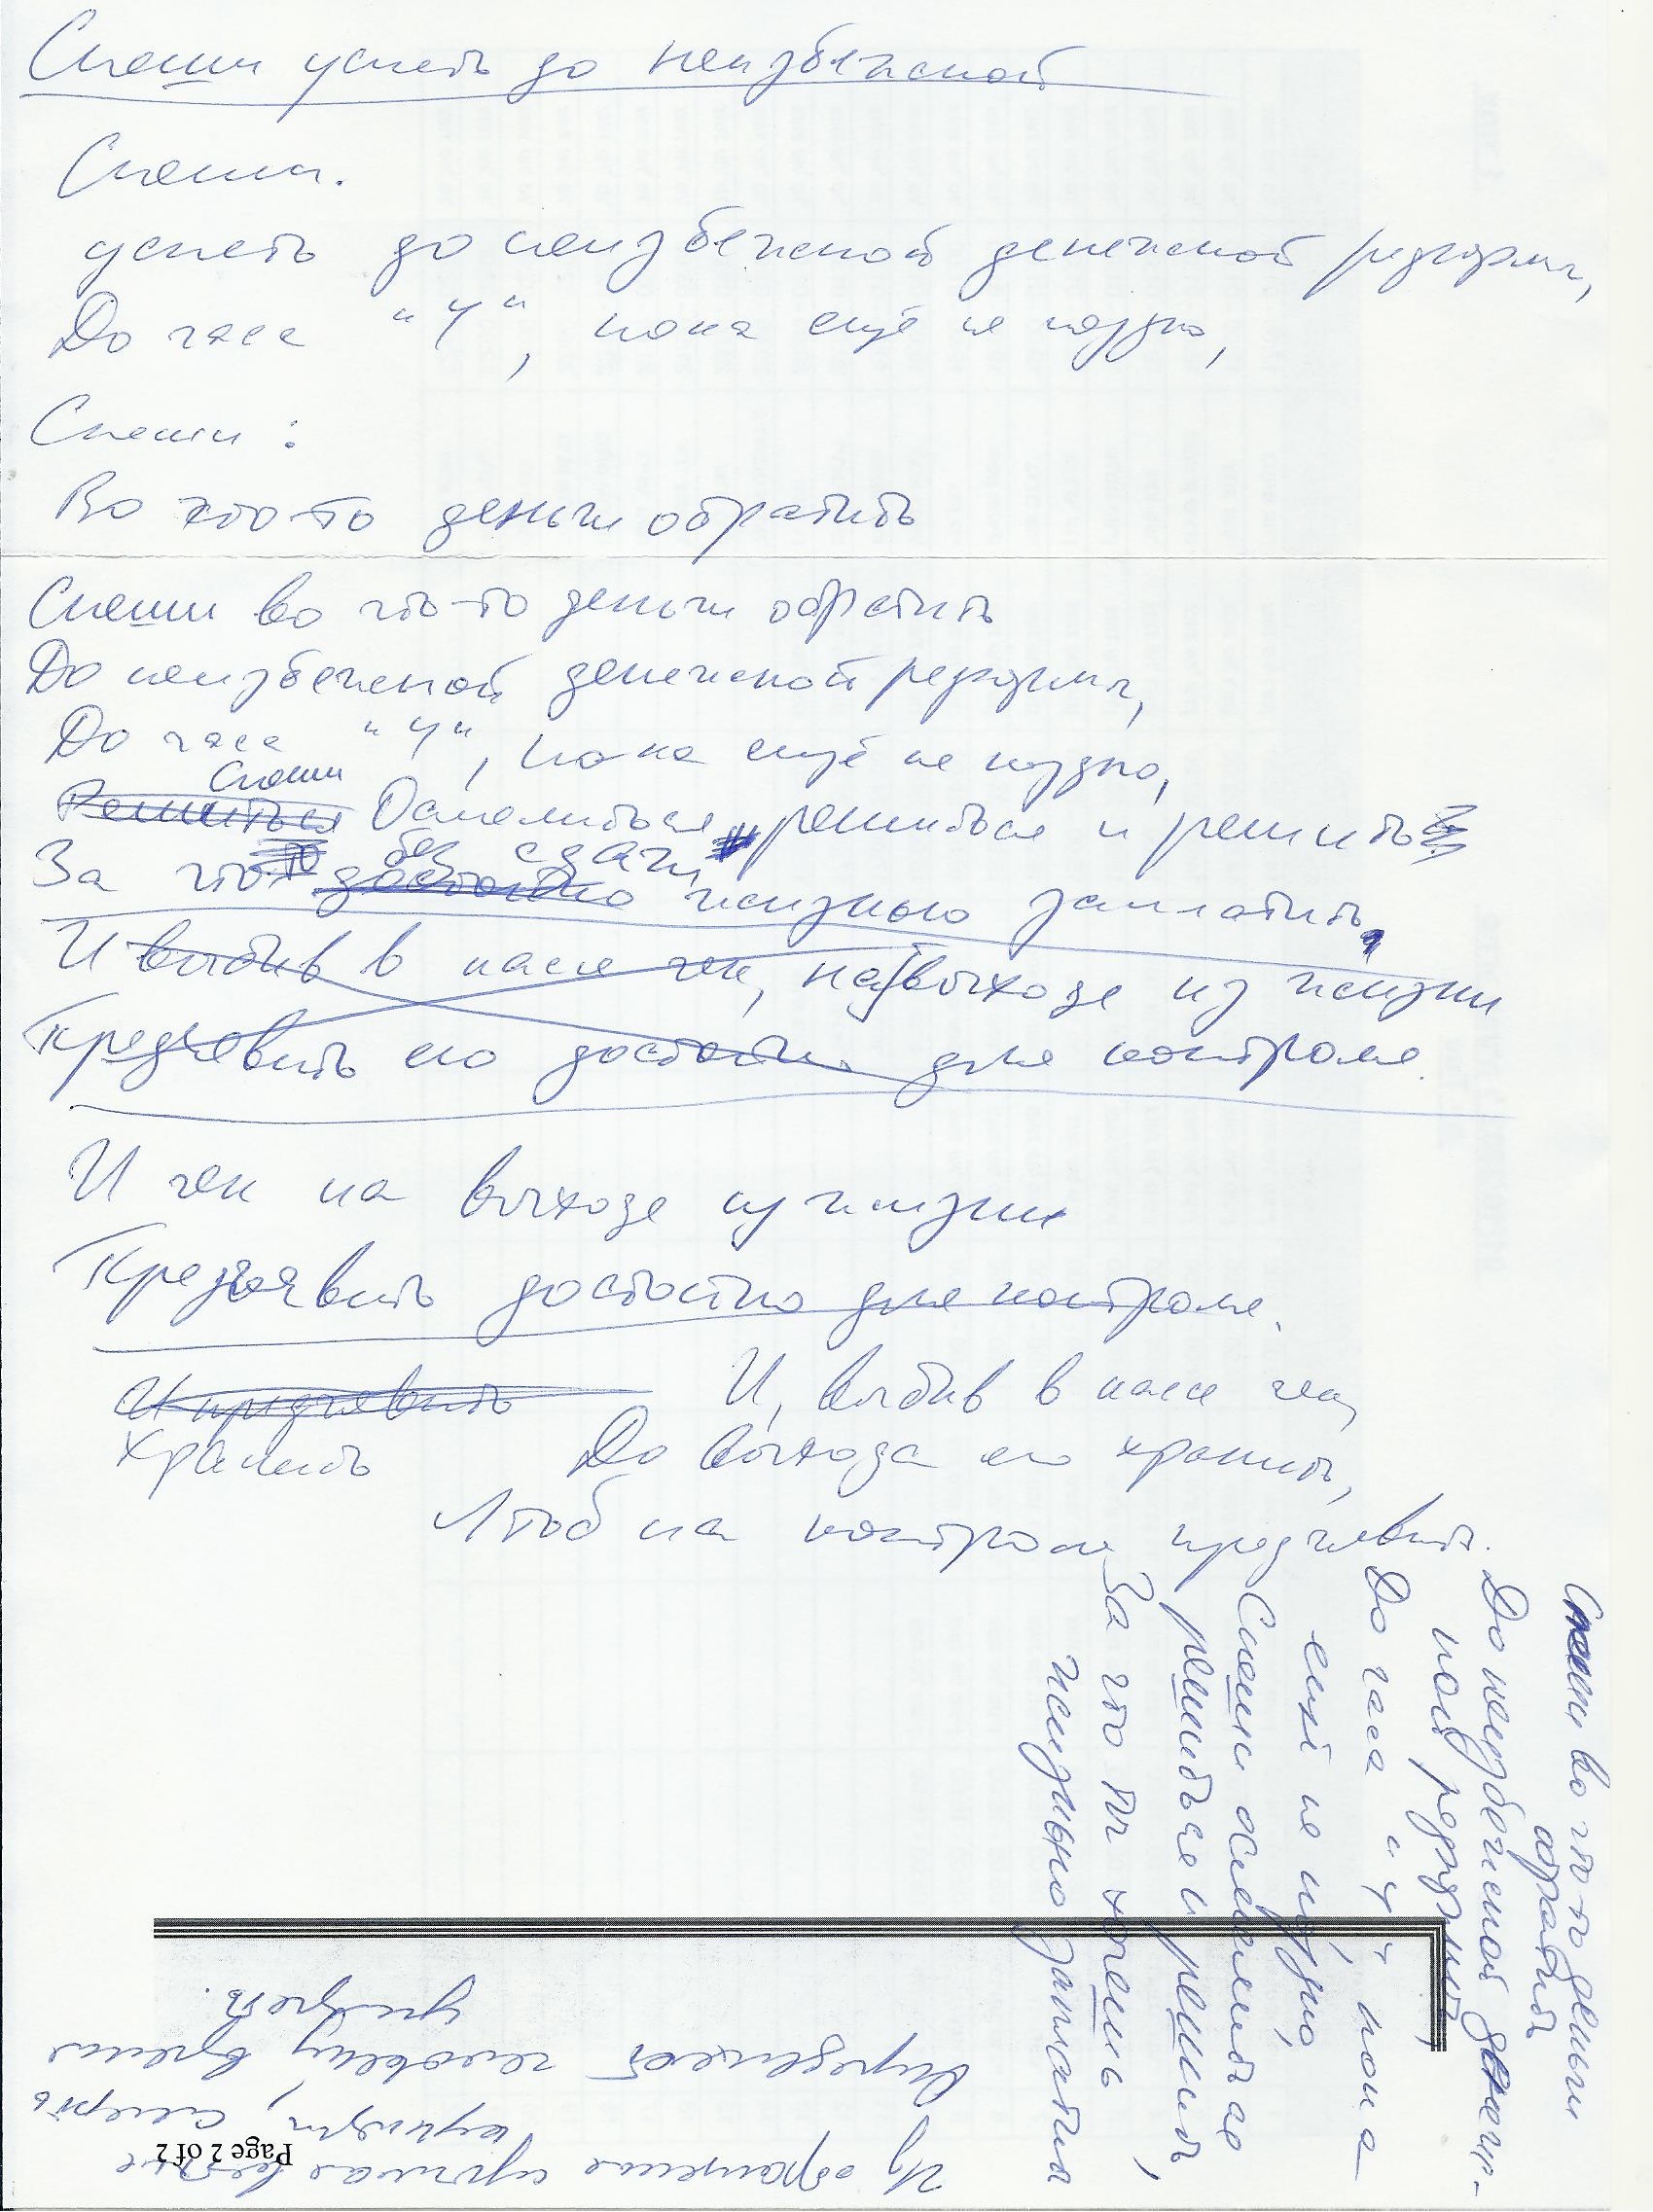 Спеши успеть до неизбежной
Спеши.
успеть до неизбежной денежной реформы,
До часа "Ч", пока ещё не поздно,
Спеши:
Во что-то деньги обратить
Спеши во что-то деньги обратить
До неизбежной денежной реформы,
До часа "Ч", пока ещё не поздно,
Спеши
Решиться Осмелиться, решиться и решить
без сдачи
За что достойно жизнью заплатить,
И выбив в кассе чек, на выходе из жизни
Предъявить его достойно для контроля.
И чек на выходе из жизни
Предъявить достойно для контроля.
И предъявить И, выбив в кассе чек,
Хранить До выхода его хранить,
Чтоб на контроле предъявить.
Спеши во что-то деньги
обратить
До неизбежной денеж-
ной реформы,
До часа "Ч", пока
ещё не поздно,
Спеши осмелиться
решиться и решить,
За что ты хочешь
жизнью заплатить
Из обращения изымая
купюры, смерть
Определяет человеку время
умереть.
Page 2 of 2